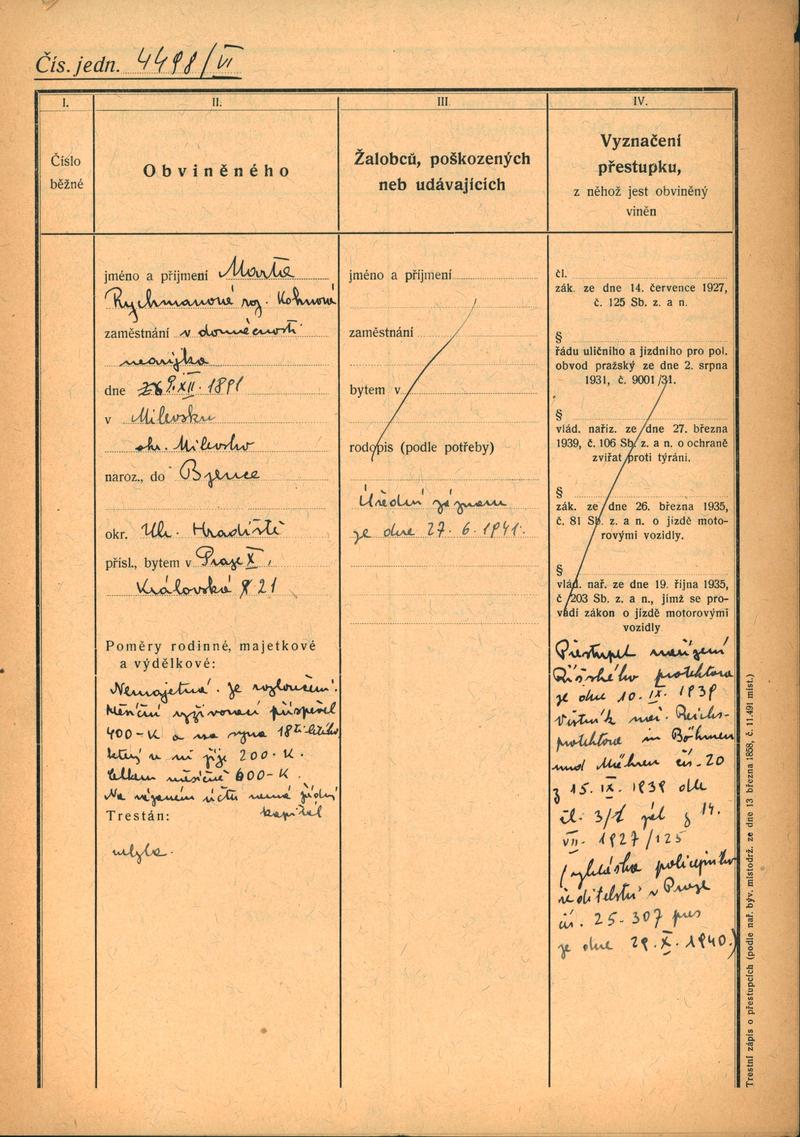 Čís. jedn. 4498/VI
I.
Číslo
běžné
II.
Obviněného
III.
Žalobců, poškozených
neb udávajících
IV.
Vyznačení
přestupku,
z něhož jest obviněný
viněn
jméno a příjmení Marta
Rychmanové roz. Kohnové
zaměstnání v domácnosti
dne 9.XII.1891
v Milevsku
okr. Milevsko
naroz., do Bzence
okr. Uh. Hradiště
přísl., bytem v Praze X,
Královská 21
Poměry rodinné, majetkové
a výdělkové:
Nemajetná. Je rozloučená.
Měsíční vyživovací příspěvek
400-K a na syna 18ti letého,
který u ní žije 200-K.
Celkem měsíčně 600-K.
Na vázaném účtu nemá žádný
kapitál
Trestán:
nebyla.
jméno a příjmení
zaměstnání
bytem v
rodopis (podle potřeby)
Úřední záznam
ze dne 27.6.1941.
čl.
zák. ze dne 14. července 1927,
č. 125 Sb. z. a n.
§
řádu uličního a jízdního pro pol.
obvod pražský ze dne 2. srpna
1931, č. 9001/31.
§
vlád. naříz. ze dne 27. března
1939, č. 106 Sb. z. a n. o ochraně
zvířat proti týrání.
§
zák. ze dne 26. března 1935,
č. 81 Sb. z. a n. o jízdě moto-
rovými vozidly.
§
vlád. nař. ze dne 19. října 1935,
č 203 Sb. z. a n., jímž se pro-
vádí zákon o jízdě motorovými
vozidly
Přestupek nařízení
Říšského protektora
ze dne 10.IX.1939
Věstník nař. Reichs-
protektora in Böhmen
und Mähren čís. 20
z 15.IX.1939 dle
čl. 3/1 z 14.
VII. 1927/125
(vyhláška policejního
ředitelství v Praze
čís. 25.307 pres
ze dne 29.X.1940.)
Trestní zápis o přestupcích (podle nař. býv. místodrž. ze dne 13 března 1858, č. 11.491 míst.)